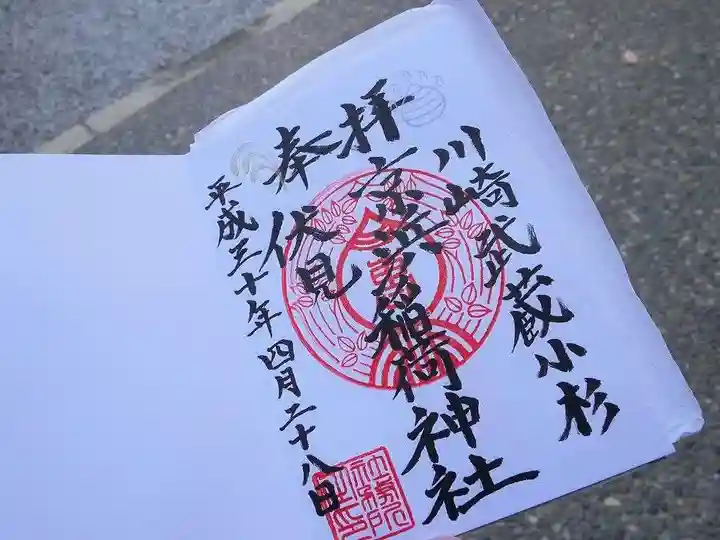 川崎武蔵小杉
拝
京濱伏見稲荷神社
奉
平成三十年四月二十八日
社務所